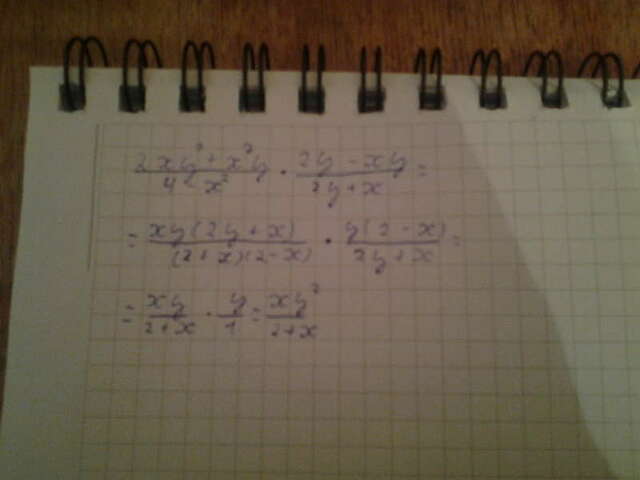 (2xy² + x²y)/(4 - x²) · (2y - xy)/(2y + x) =
= (xy(2y + x))/((2 + x)(2 - x)) · (y(2 - x))/(2y + x) =
= (xy)/(2 + x) · y/1 = (xy²)/(2 + x)